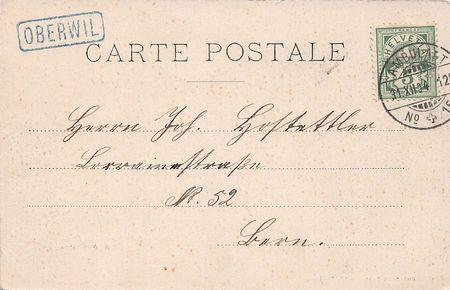 OBERWIL
CARTE POSTALE
HELVETIA
5
31.XII.04
No 4
Herrn Joh. Hostettler
Lorrainestraße
No. 52
Bern.